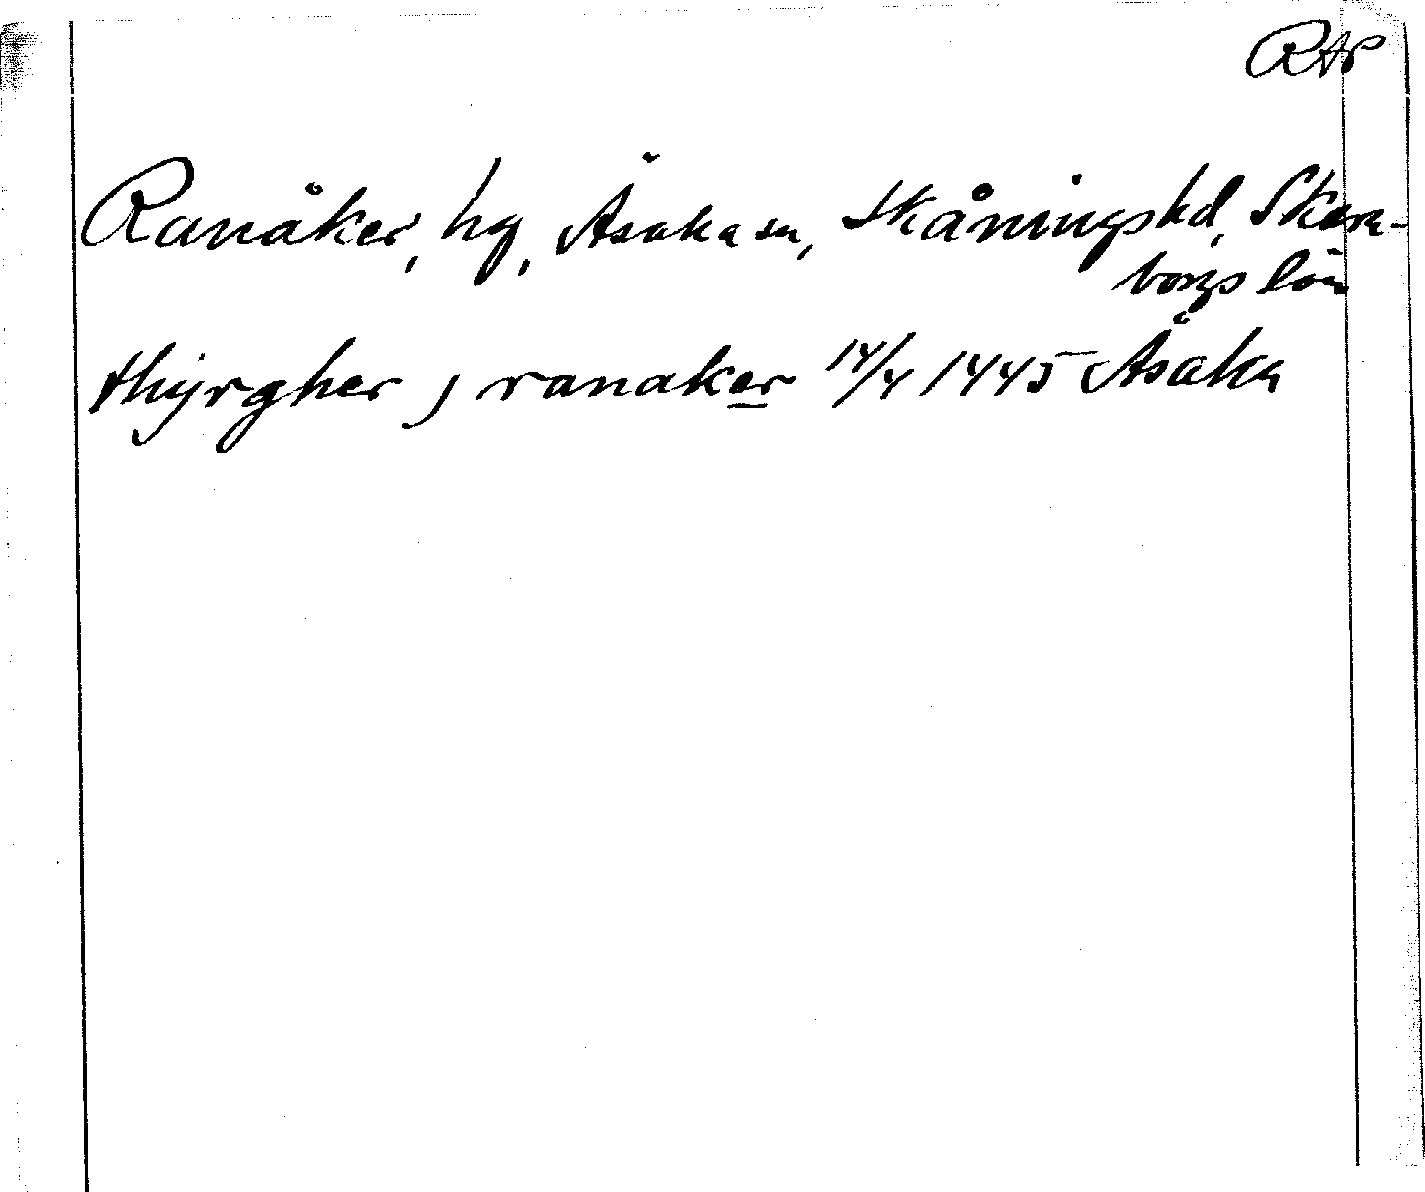 RAP
Ranåker, hg, Åsaka sn, Skånings hd, Skara-
borgs län
thyrgher j ranaker 14/4 1445 Åsaka